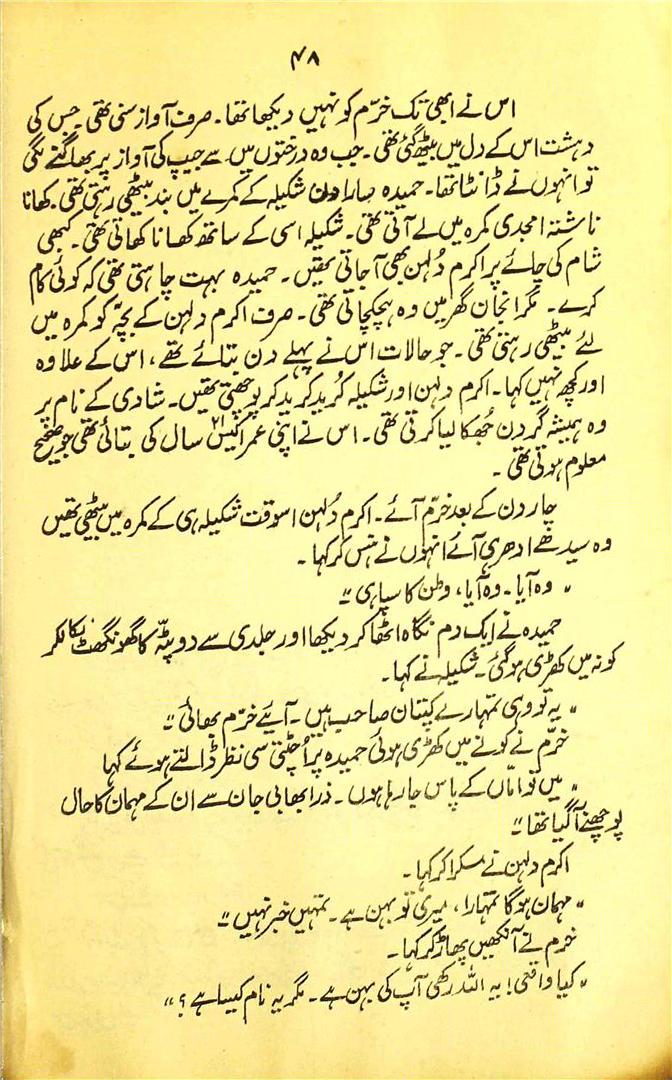 ۴۸
اس نے ابھی تک خرّم کو نہیں دیکھا تھا۔ صرف آواز سنی تھی۔ جس کی
دہشت اس کے دل میں بیٹھ گئی تھی۔ جب وہ درختوں میں سے جیپ کی آواز پر بھاگنے لگی
تو انہوں نے ڈانٹا تھا۔ حمیدہ سارا دن شکیلہ کے کمرے میں بند بیٹھی رہتی تھی۔ کھانا
ناشتہ امجدی کمرہ میں لے آتی تھی۔ شکیلہ اسی کے ساتھ کھانا کھاتی تھی۔ کبھی
شام کی چائے پر اکرم دُلہن بھی آجاتی تھیں۔ حمیدہ بہت چاہتی تھی کہ کوئی کام
کرے۔ مگر انجان گھر میں وہ ہچکچاتی تھی۔ صرف اکرم دلہن کے بچّہ کو کمرہ میں
لئے بیٹھی رہتی تھی۔ جو حالات اس نے پہلے دن بتائے تھے، اس کے علاوہ
اور کچھ نہیں کہا۔ اکرم دلہن اور شکیلہ کُرید کرید کر پوچھتی تھیں۔ شادی کے نام پر
وہ ہمیشہ گردن جُھکا لیا کرتی تھی۔ اس نے اپنی عمر اکیس ۲۱ سال کی بتائی تھی جو صحیح
معلوم ہوتی تھی۔
چار دن کے بعد خرّم آئے۔ اکرم دُلہن اسوقت شکیلہ ہی کے کمرہ میں بیٹھی تھیں
وہ سیدھے ادھر ہی آئے انہوں نے ہنس کر کہا۔
"وہ آیا۔ وہ آیا، وطن کا سپاہی"
حمیدہ نے ایک دم نگاہ اٹھا کر دیکھا اور جلدی سے دوپٹّہ کا گھونگھٹ نکال کر
کونہ میں کھڑی ہو گئی۔ شکیلہ نے کہا۔
"یہ تو وہی تمہارے کپتان صاحب ہیں۔ آیئے خرّم بھائی"
خرّم نے کونے میں کھڑی ہوئی حمیدہ پر اُچٹتی سی نظر ڈالتے ہوئے کہا
"میں تو امّاں کے پاس جا رہا ہوں۔ ذرا بھابی جان سے ان کے مہمان کا حال
پوچھنے آگیا تھا"
اکرم دلہن نے مسکرا کر کہا۔
"مہمان ہوگا تمہارا، میری تو بہن ہے۔ تمہیں خبر نہیں"
خرم نے آنکھیں پھاڑ کر کہا۔
"کیا واقعی! یہ اللہ رکھی آپ کی بہن ہے۔ مگر یہ نام کیسا ہے؟"